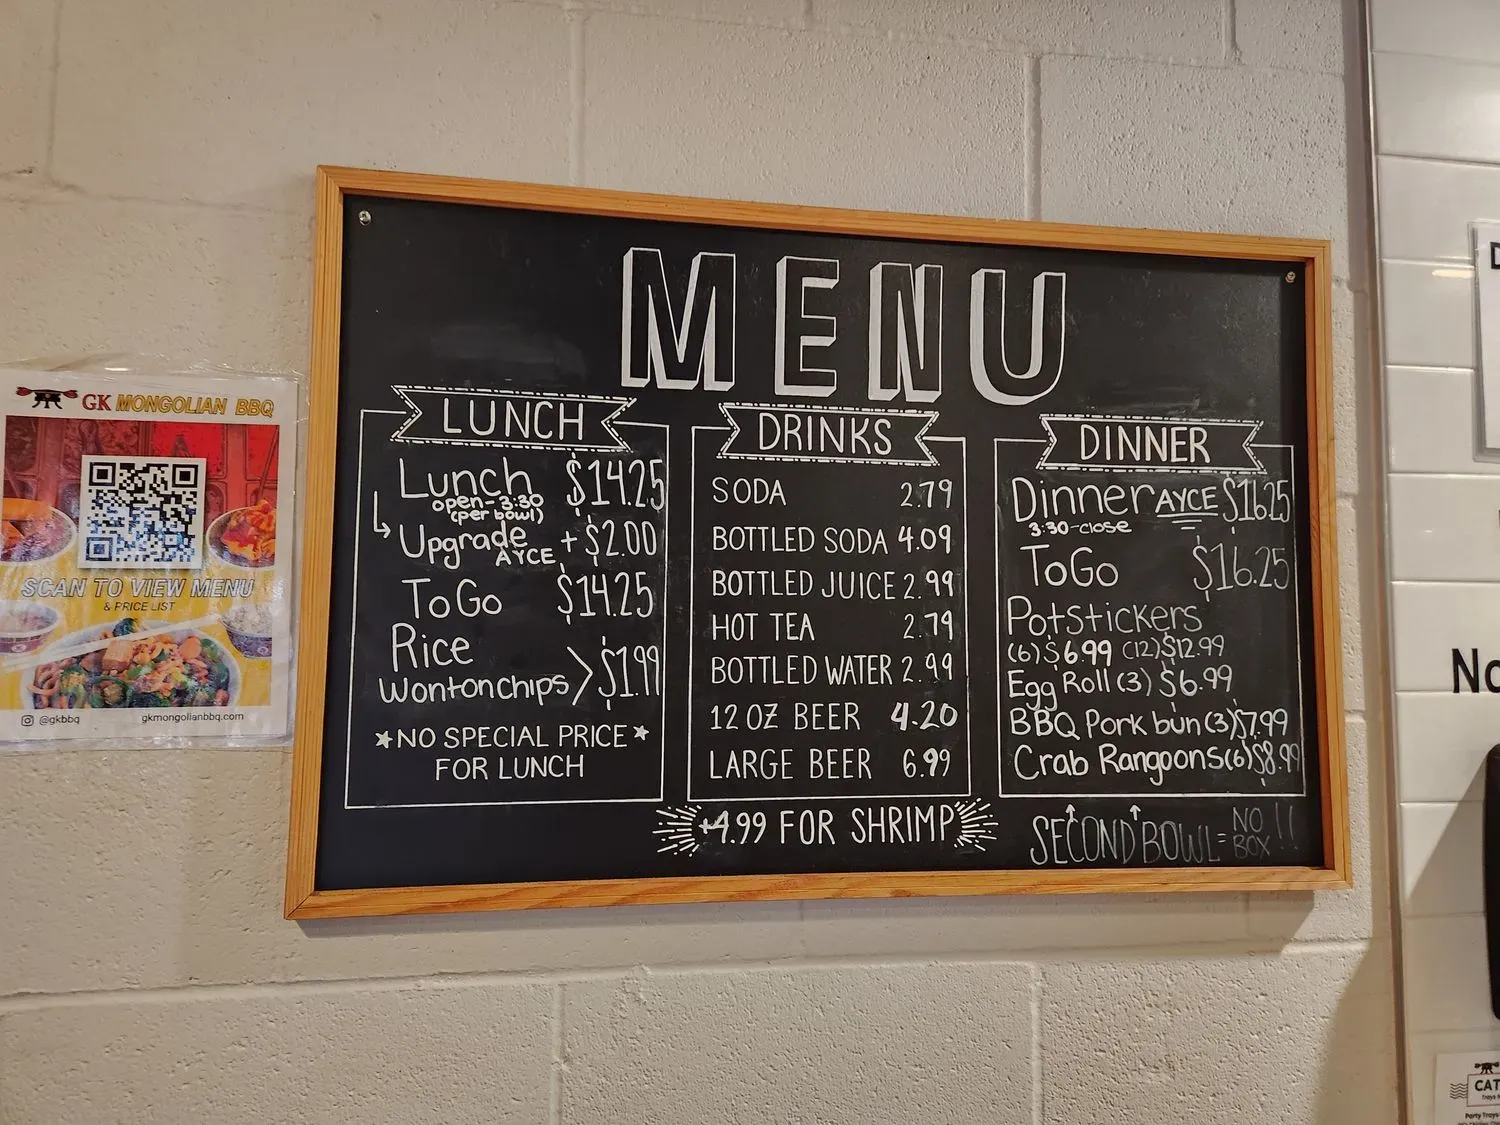 MENU
LUNCH
Lunch $14.25
open-3:30
(per bowl)
Upgrade + $2.00
AYCE
ToGo $14.25
Rice
Wontonchips > $1.99
★NO SPECIAL PRICE★
FOR LUNCH
DRINKS
SODA 2.79
BOTTLED SODA 4.09
BOTTLED JUICE 2.99
HOT TEA 2.79
BOTTLED WATER 2.99
12 OZ BEER 4.20
LARGE BEER 6.99
+4.99 FOR SHRIMP
DINNER
Dinner AYCE $16.25
3:30-close
ToGo $16.25
Potstickers
(6)$6.99 (12)$12.99
Egg Roll (3) $6.99
BBQ Pork bun (3)$7.99
Crab Rangoons(6)$8.99
SECOND BOWL = NO BOX !!
GK MONGOLIAN BBQ
SCAN TO VIEW MENU
& PRICE LIST
@gkbbq gkmongolianbbq.com
No
CAT
Party Trays